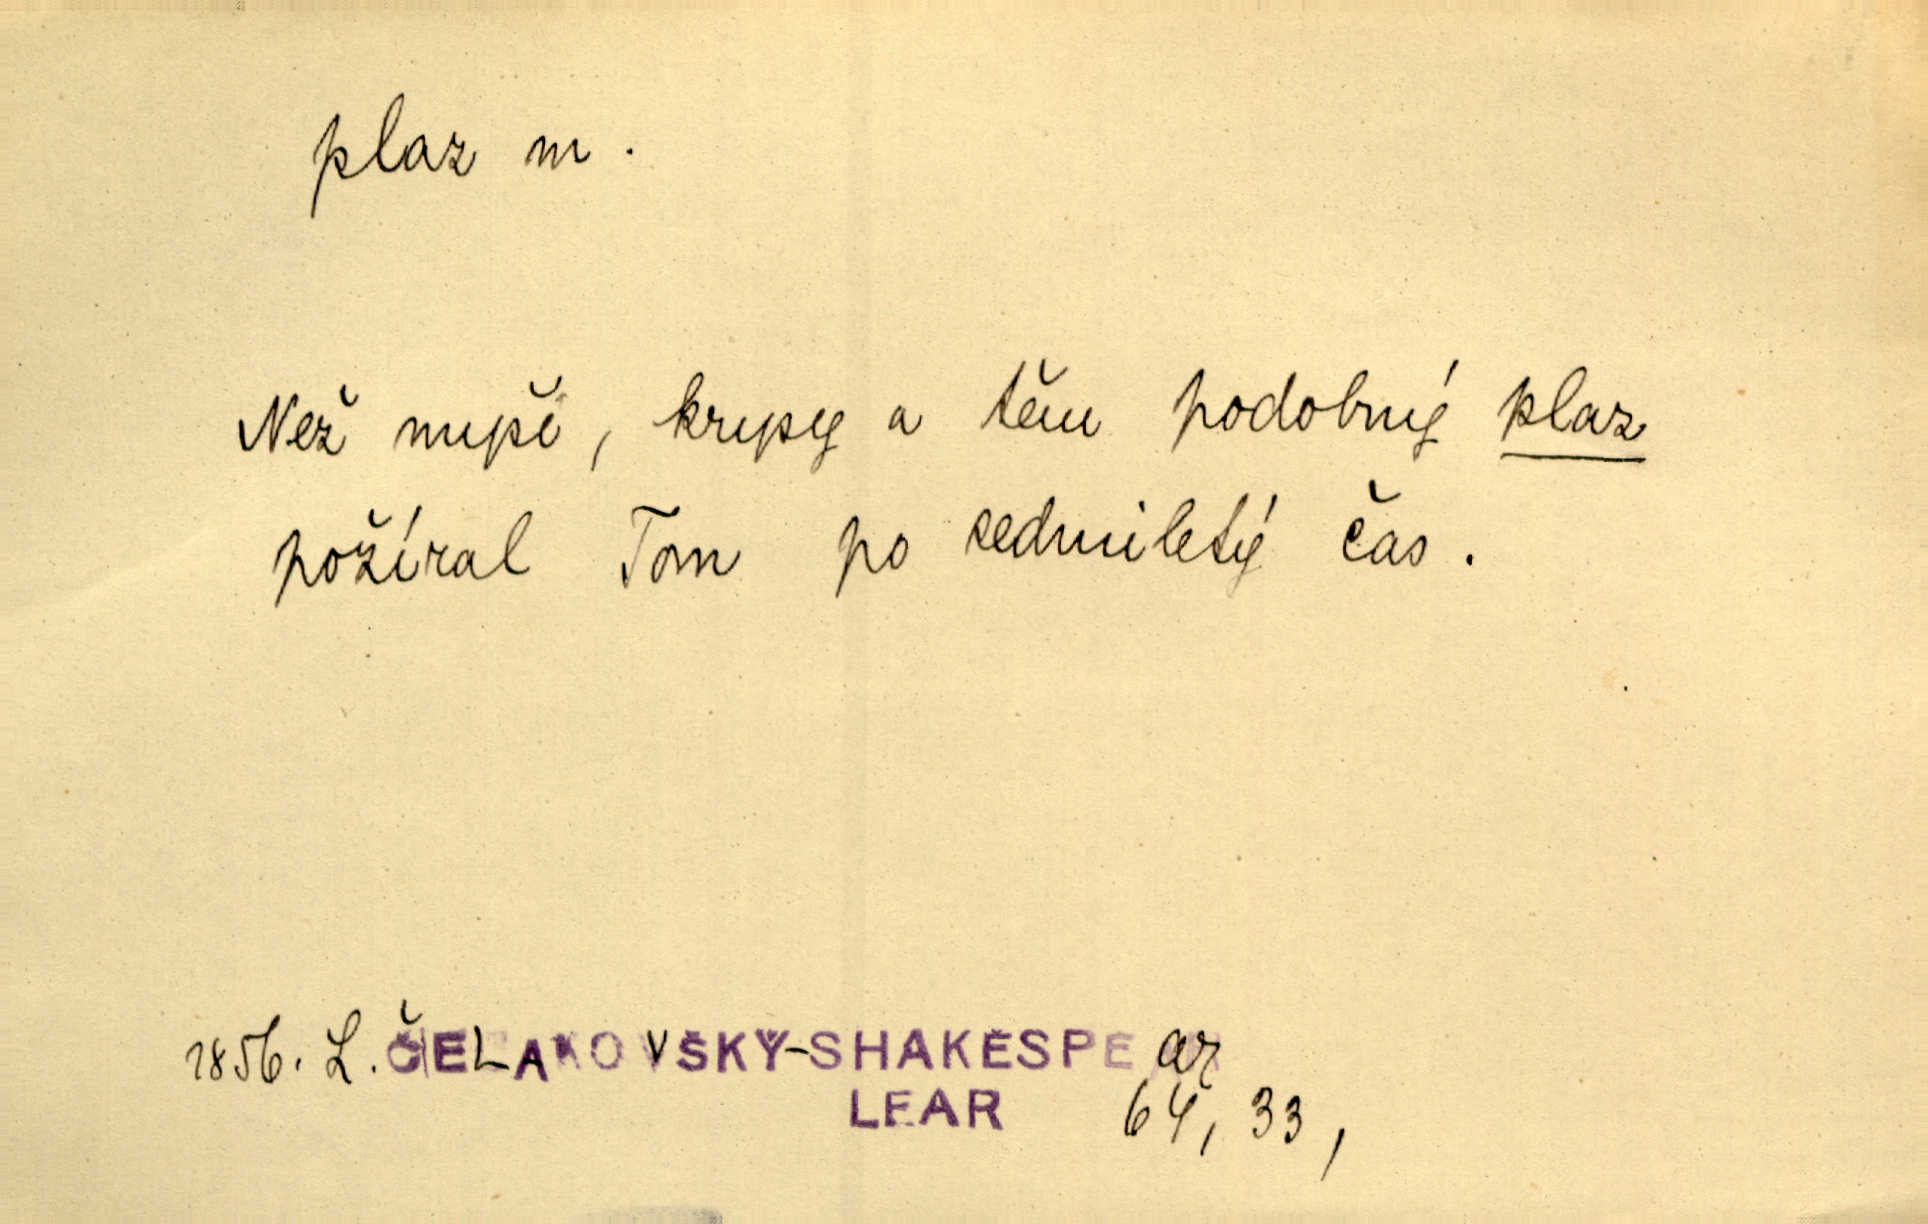 plaz m.
Než myší, krysy a těm podobný plaz
požíral Tom po sedmiletý čas.
1856. L. ČELAKOVSKÝ-SHAKESPEar
LEAR 64, 33,